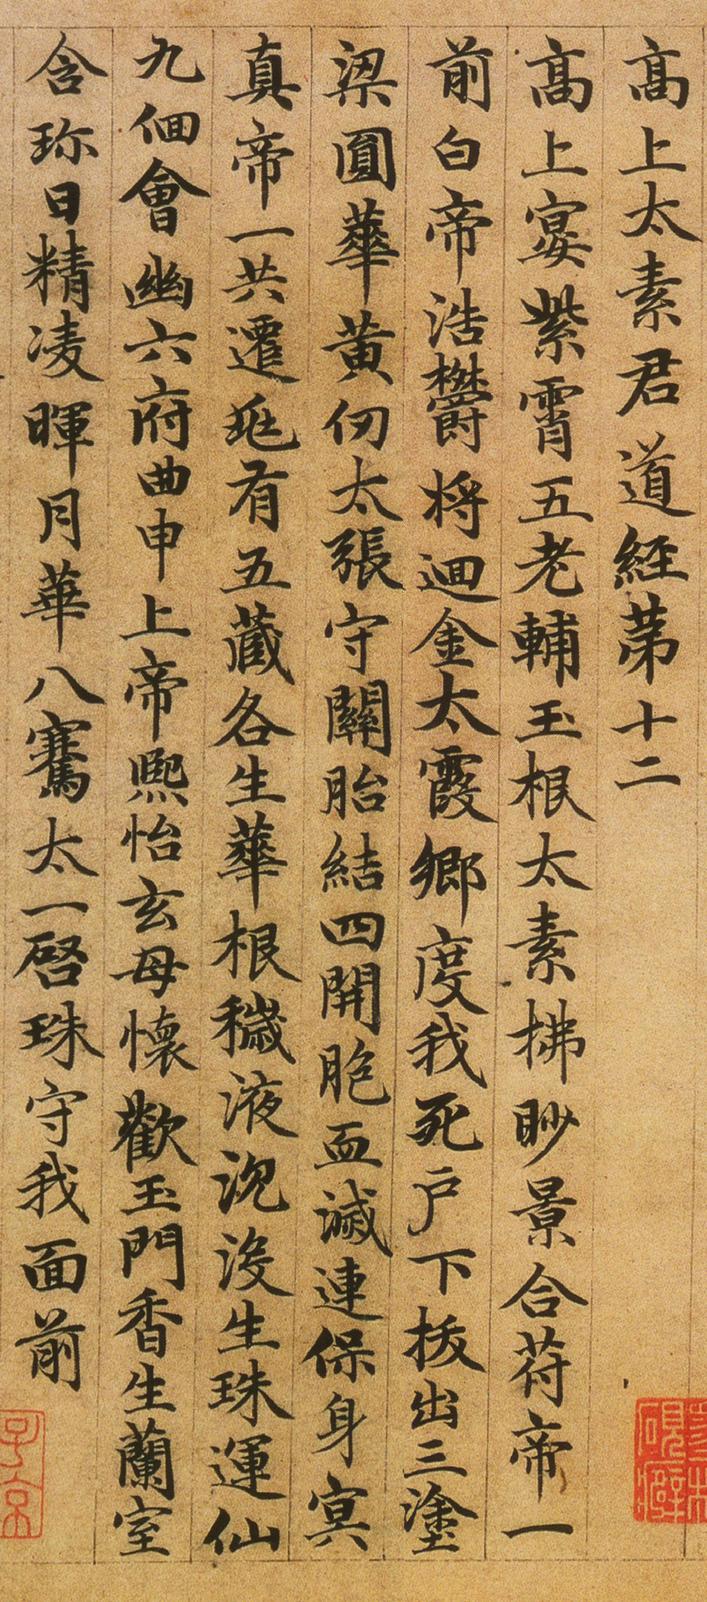 高上太素君道經第十二
高上宴紫霄五老輔玉根太素拂眇景合苻帝一
前白帝浩欝將迴金太霞鄉度我死戶下拔出三塗
梁圓華黃仞太張守關胎結四開胞血滅連保身冥
真帝一共遷延有五藏各生華根穢液沉没生珠運仙
九佪會幽六府曲申上帝熙怡玄母懷歡玉門香生蘭室
含珎日精凌暉月華八騫太一啓珠守我面前
子京